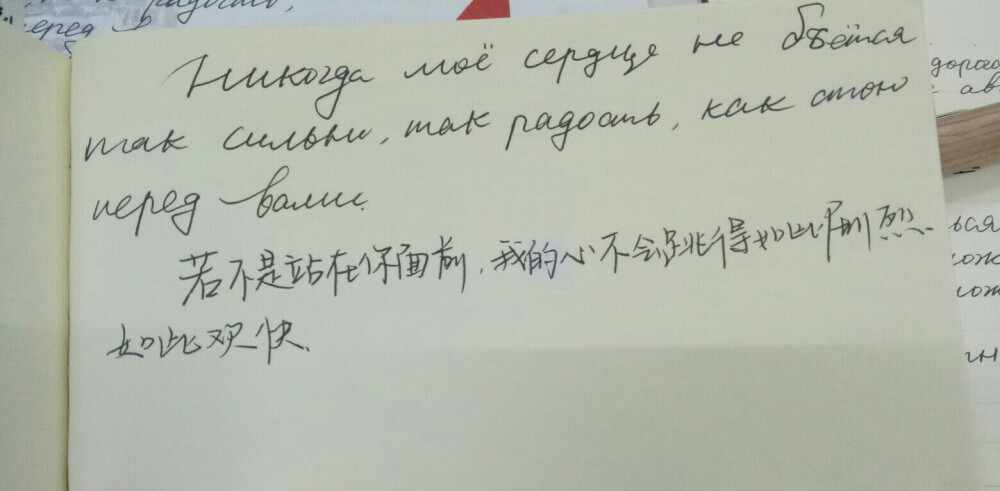 радость,
перед в
Никогда моё сердце не бьётся
так сильно, так радость, как стою
перед вами.
若不是站在你面前,我的心不会跳得如此剧烈.
如此欢快.
дорог
ав
ься